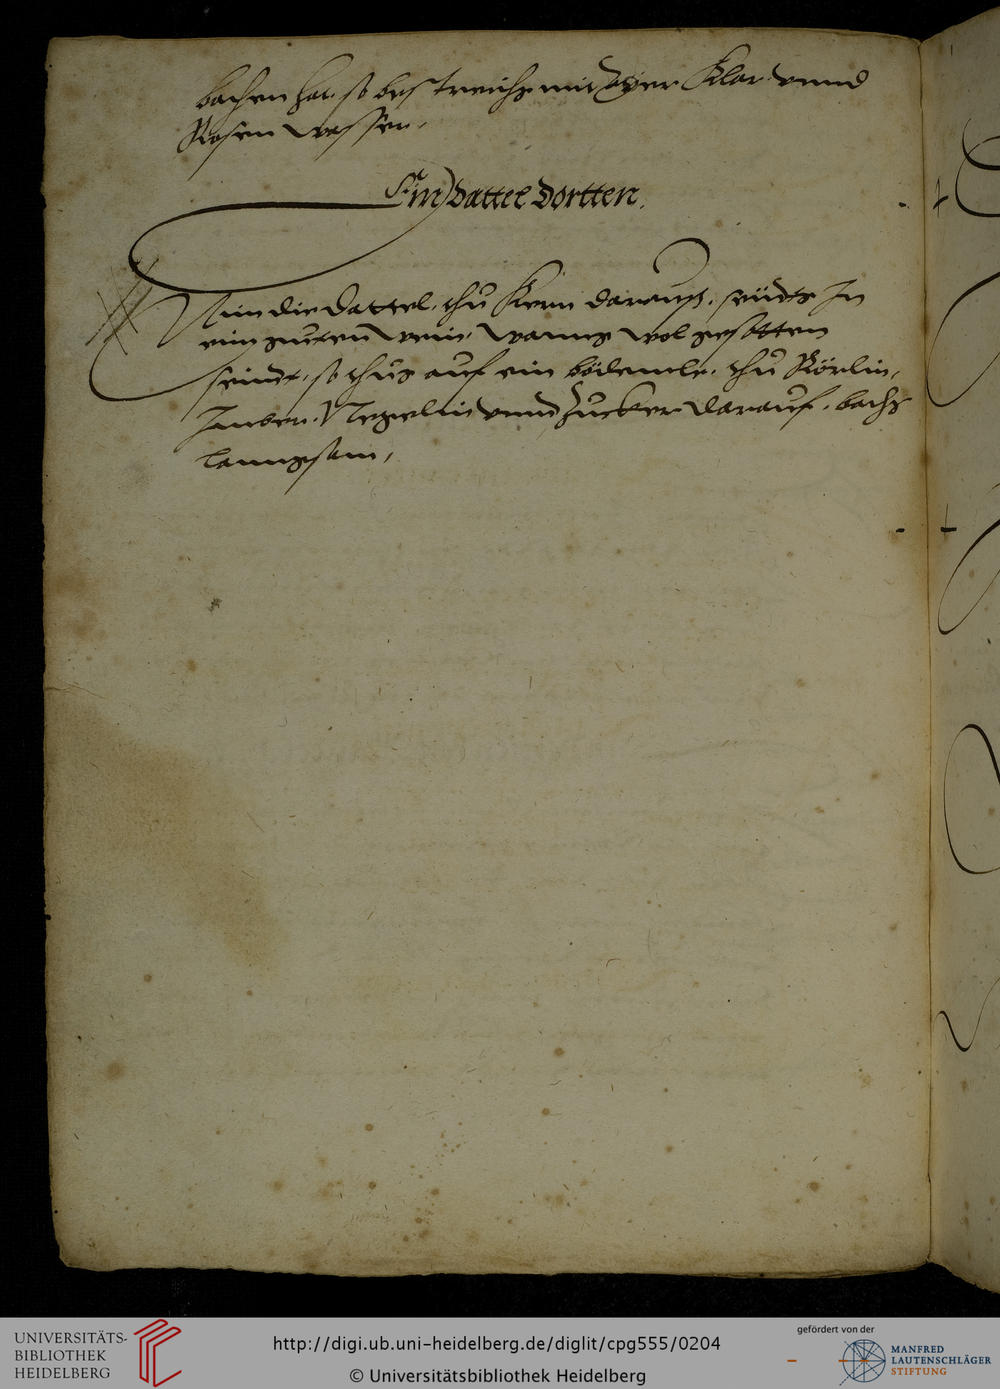 bachen hat. so bestreichs mit Ayer Klar. vnnd
Rosen wasser,
Ein dattel dortten.
Nim die dattel. thu Kern darauß. seüdts In
ein gutten wein, wanns wol gesotten
seindt, so thus auf ein bödemle. thu Rörlin,
Imber. Negelin vnnd Zucker darauf. bachs
lanngsam,
UNIVERSITÄTS-
BIBLIOTHEK
HEIDELBERG
http://digi.ub.uni-heidelberg.de/diglit/cpg555/0204
© Universitätsbibliothek Heidelberg
gefördert von der
MANFRED
LAUTENSCHLÄGER
STIFTUNG